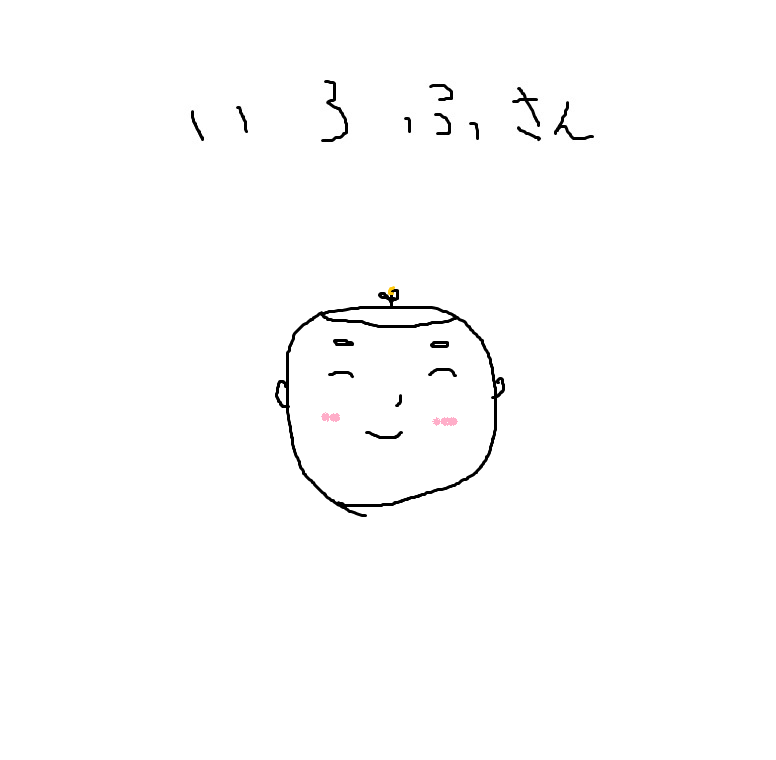 いろふさん